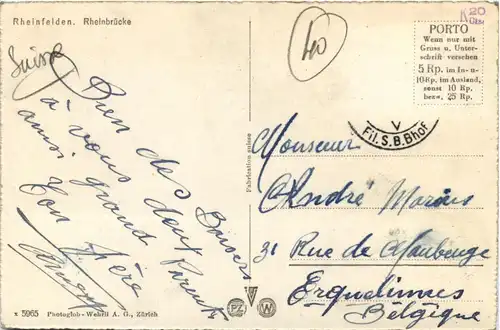 Rheinfelden. Rheinbrücke
K 20
40
PORTO
Wenn nur mit
Gruss u. Unter-
schrift versehen
5 Rp. im In- u-
10 Rp. im Ausland,
sonst 10 Rp.
bezw. 25 Rp.
V
Fil. S.B.Bhof
Suisse
Bien des Baisers
à vous deux
ainsi grands Parents
Ton Frère
Fabrication suisse
Monsieur
André
31 Rue de Maubeuge
Erquelinnes
Belgique
PZ
W
z 5965 Photoglob-Wehrli A. G., Zürich